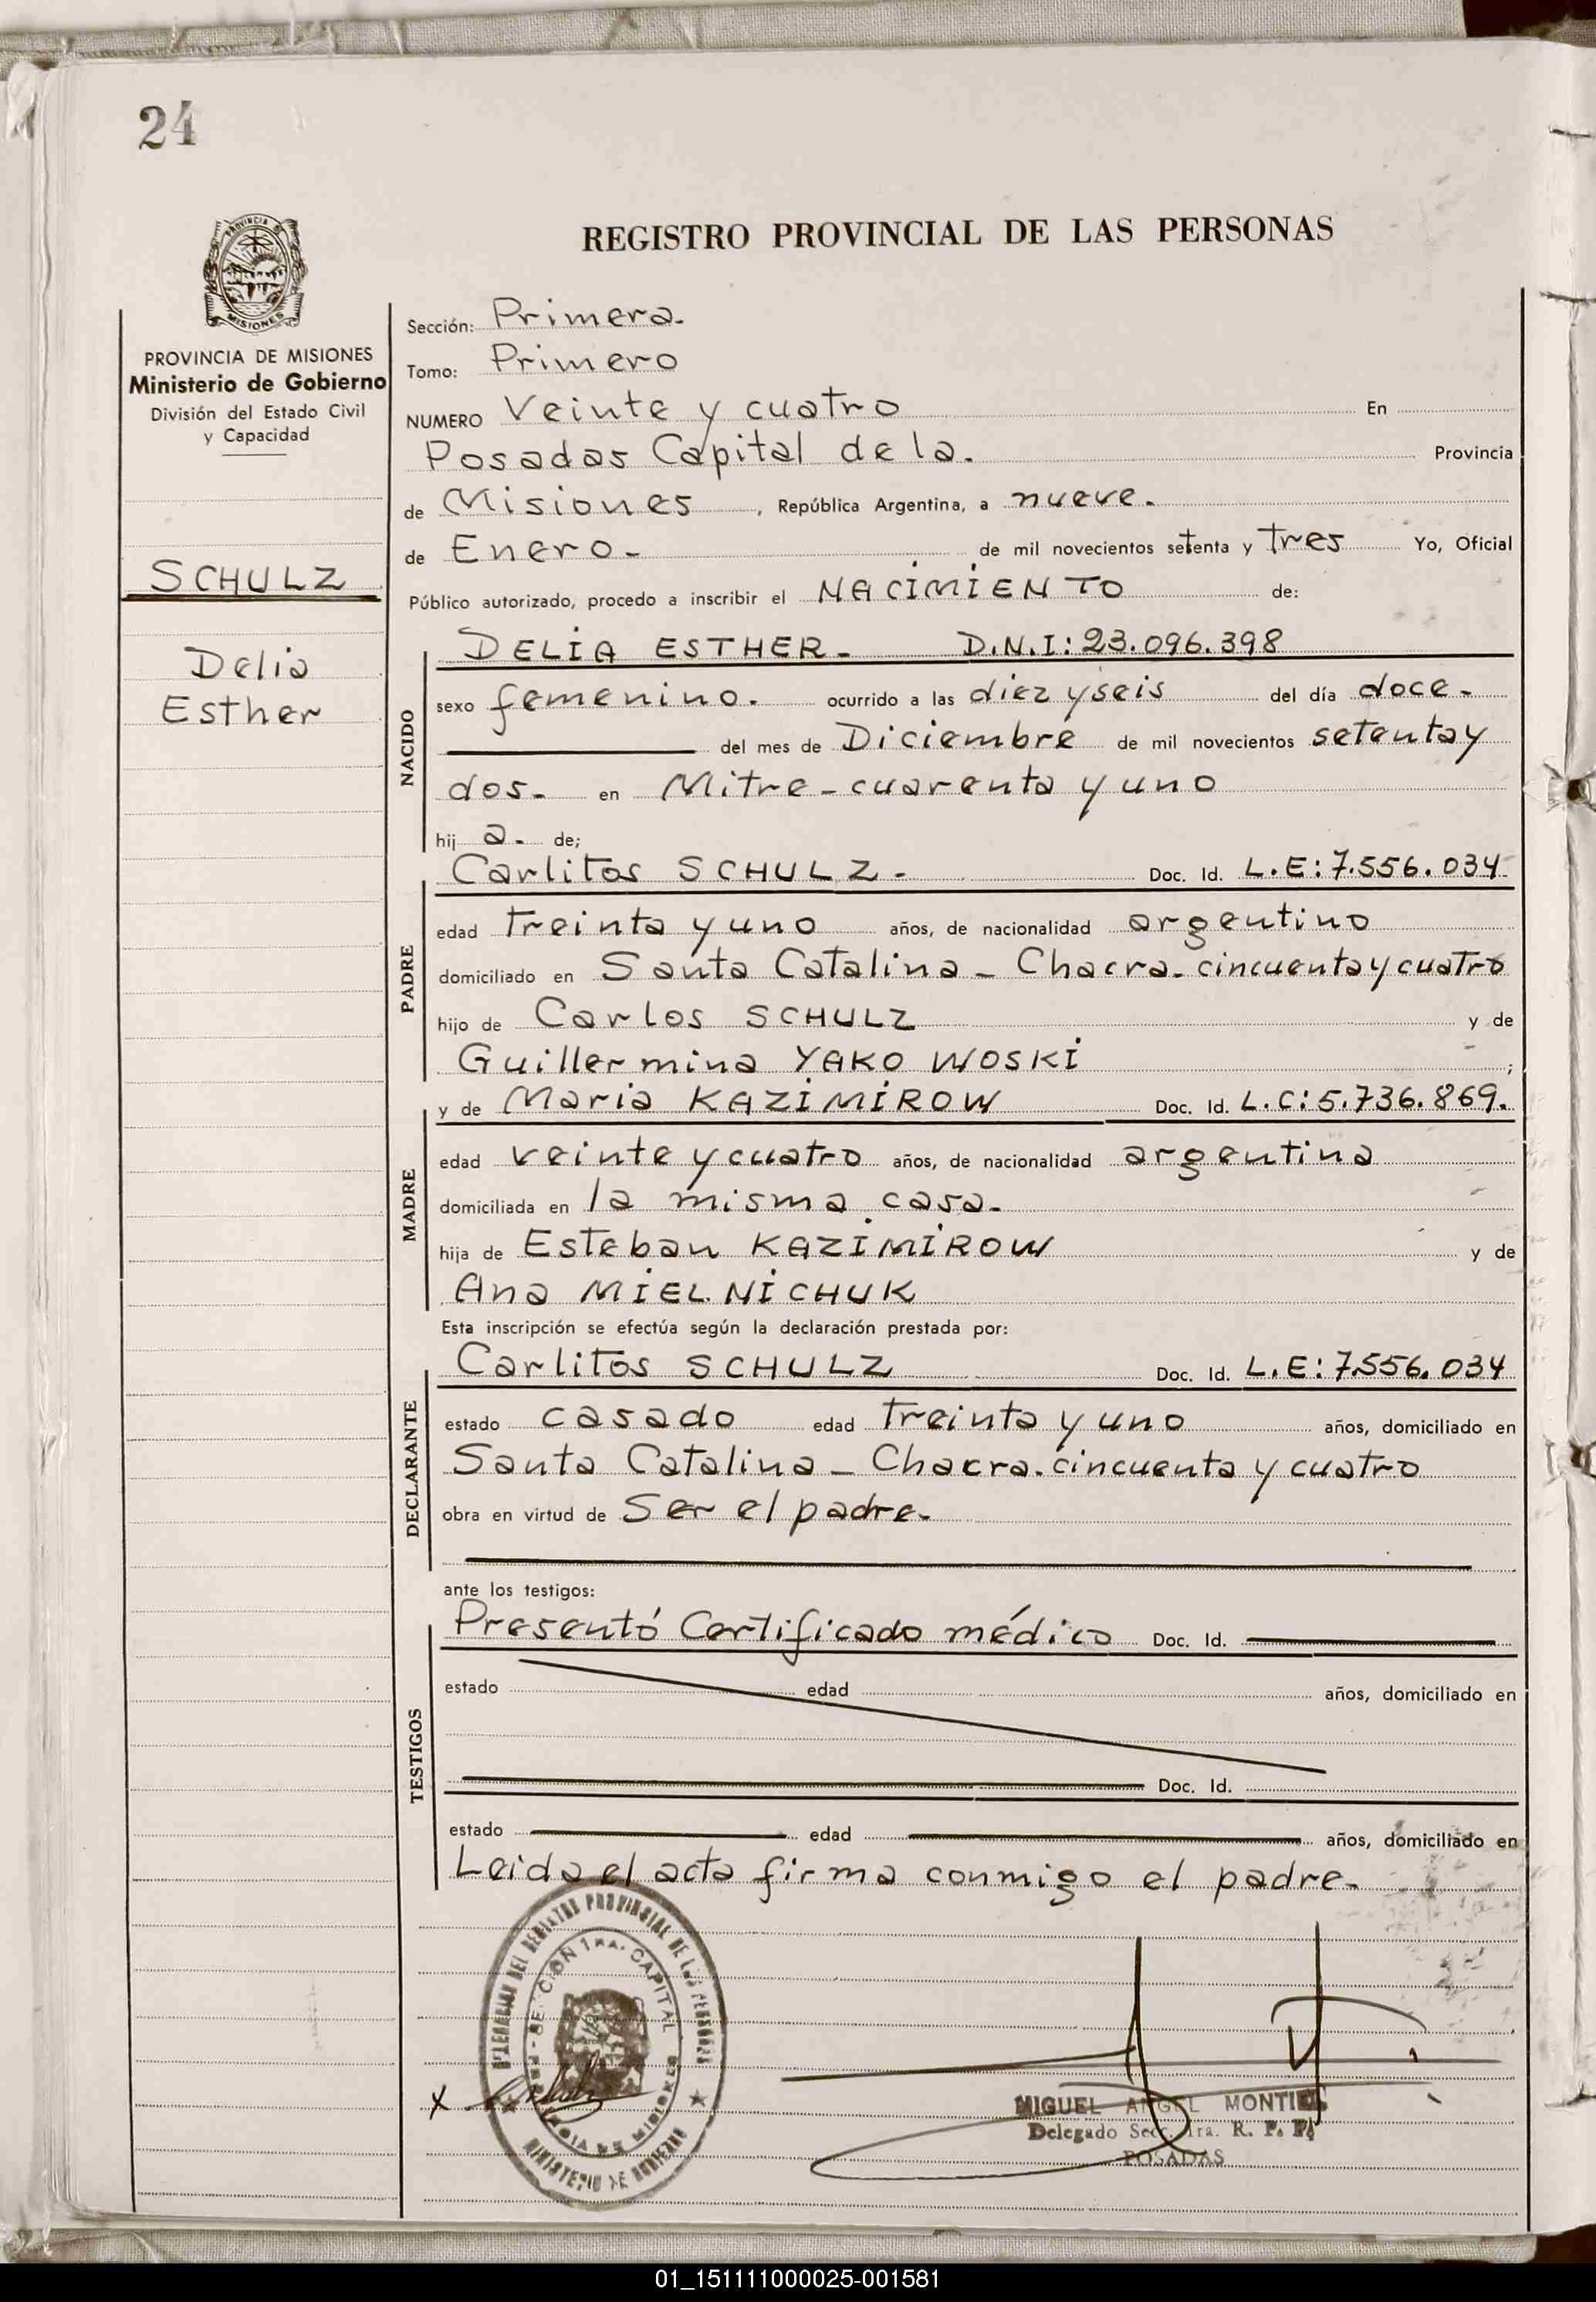 24
PROVINCIA
MISIONES
REGISTRO PROVINCIAL DE LAS PERSONAS
PROVINCIA DE MISIONES
Ministerio de Gobierno
División del Estado Civil
y Capacidad
SCHULZ
Delia
Esther
Sección: Primera.
Tomo: Primero
NUMERO Veinte y cuatro En
Posadas Capital de la. Provincia
de Misiones, República Argentina, a nueve.
de Enero. de mil novecientos setenta y tres Yo, Oficial
Público autorizado, procedo a inscribir el NACIMIENTO de:
DELIA ESTHER. D.N.I: 23.096.398
NACIDO
sexo femenino. ocurrido a las diez y seis del día doce.
del mes de Diciembre de mil novecientos setenta y
dos. en Mitre - cuarenta y uno
hij a. de;
Carlitos SCHULZ. Doc. Id. L.E: 7.556.034
PADRE
edad treinta y uno años, de nacionalidad argentino
domiciliado en Santa Catalina - Chacra. cincuenta y cuatro
hijo de Carlos SCHULZ y de
Guillermina YAKO WOSKI ;
y de Maria KAZIMIROW Doc. Id. L.C: 5.736.869.
MADRE
edad veinte y cuatro años, de nacionalidad argentina
domiciliada en la misma casa.
hija de Esteban KAZIMIROW y de
Ana MIELNICHUK
Esta inscripción se efectúa según la declaración prestada por:
Carlitos SCHULZ Doc. Id. L.E: 7.556.034
DECLARANTE
estado casado edad treinta y uno años, domiciliado en
Santa Catalina - Chacra. cincuenta y cuatro
obra en virtud de Ser el padre.
ante los testigos:
Presentó Certificado médico Doc. Id.
TESTIGOS
estado edad años, domiciliado en
Doc. Id.
estado edad años, domiciliado en
Leida el acta firma conmigo el padre.
REGISTRO PROVINCIAL DE LAS PERSONAS
SECCION 1RA. CAPITAL
MINISTERIO DE GOBIERNO
X
MIGUEL ANGEL MONTIEL
Delegado Secc. 1ra. R. P. P.
POSADAS
01_151111000025-001581